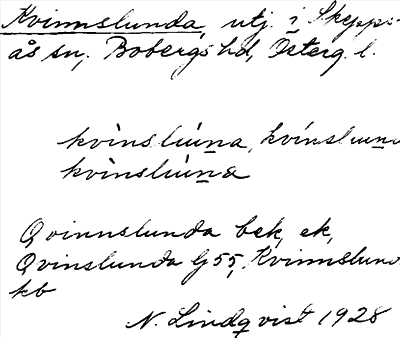 Kvinnslunda, utj. i Skepps-
ås sn, Bobergs hd, Österg. l.
kvìnsluna, kvínsluna
kvìnsluna
Qvinnslunda bek, ek,
Qvinslunda Gj 55, Kvinnslund
kb
N. Lindqvist 1928